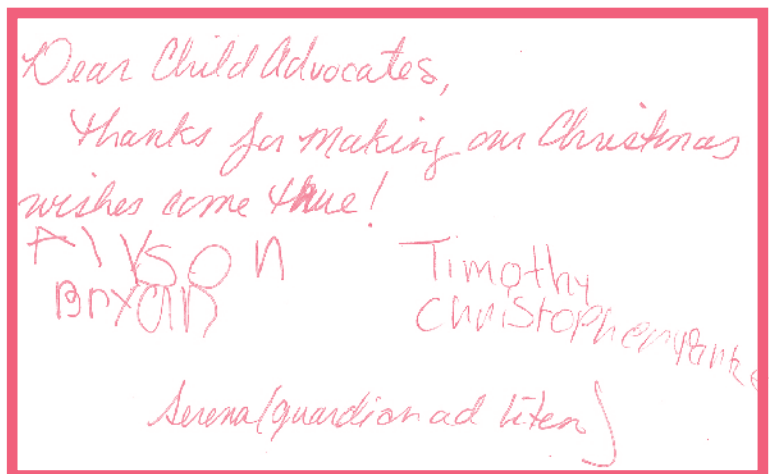 Dear Child Advocates,
Thanks for making our Christmas
wishes come true!
Alyson
Timothy
Bryan
Christopher
Serena (guardian ad litem)